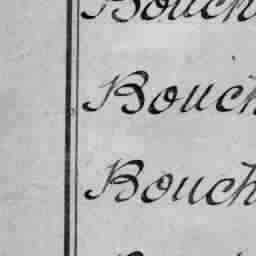 Bouch
Bouch
Bouch